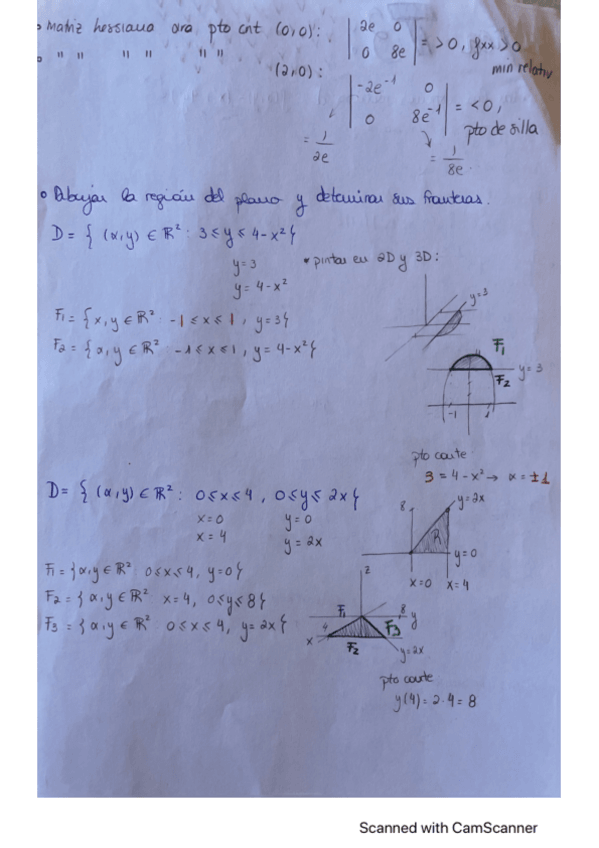 o Matriz hessiana para pto crit (0,0): | 2e 0 0 8e | = > 0, fxx > 0
min relativ
o " " " " " " (2,0): | -2e⁻¹ 0 0 8e⁻¹ | = < 0,
pto de silla
= 1/2e
= 1/8e
o Dibujar la región del plano y determinar sus fronteras.
D = { (x,y) ∈ ℝ² : 3 ≤ y ≤ 4-x² }
y = 3
y = 4-x²
* pintar en 2D y 3D:
F₁ = { x,y ∈ ℝ² -1 ≤ x ≤ 1, y = 3 }
F₂ = { x,y ∈ ℝ² -1 ≤ x ≤ 1, y = 4-x² }
y=3
F₁
y = 3
F₂
-1 1
pto corte
3 = 4-x² → x = ±1
D = { (x,y) ∈ ℝ² : 0 ≤ x ≤ 4, 0 ≤ y ≤ 2x }
x = 0 y = 0
x = 4 y = 2x
8 y=2x
R
y=0
x=0 x=4
F₁ = { x,y ∈ ℝ² 0 ≤ x ≤ 4, y = 0 }
F₂ = { x,y ∈ ℝ² x = 4, 0 ≤ y ≤ 8 }
F₃ = { x,y ∈ ℝ² 0 ≤ x ≤ 4, y = 2x }
z
F₁ 8 y
4 F₃
x F₂
y=2x
pto corte
y(4) = 2·4 = 8
Scanned with CamScanner